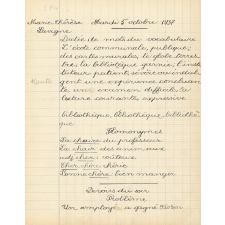 Marie-Thérèse Mardi 5 octobre 1937
Lavigne
Dictée de mots du vocabulaire
L'école communale, publique,
des cartes murales, le globe terres-
tre, la bibliothèque garnie, l'insti-
tuteur patient, sévère ou indul-
gent une expérience concluan-
te, un examen difficile, la
lecture courante, expressive
bibliothèque, bibliothèque, bibliothè-
que
Homonymes
La chaire du professeur
La chair des animaux
cher: coûteux
Cher chère: chérie
bonne chère: bien manger
Devoirs du soir
Problème
Un employé a gagné